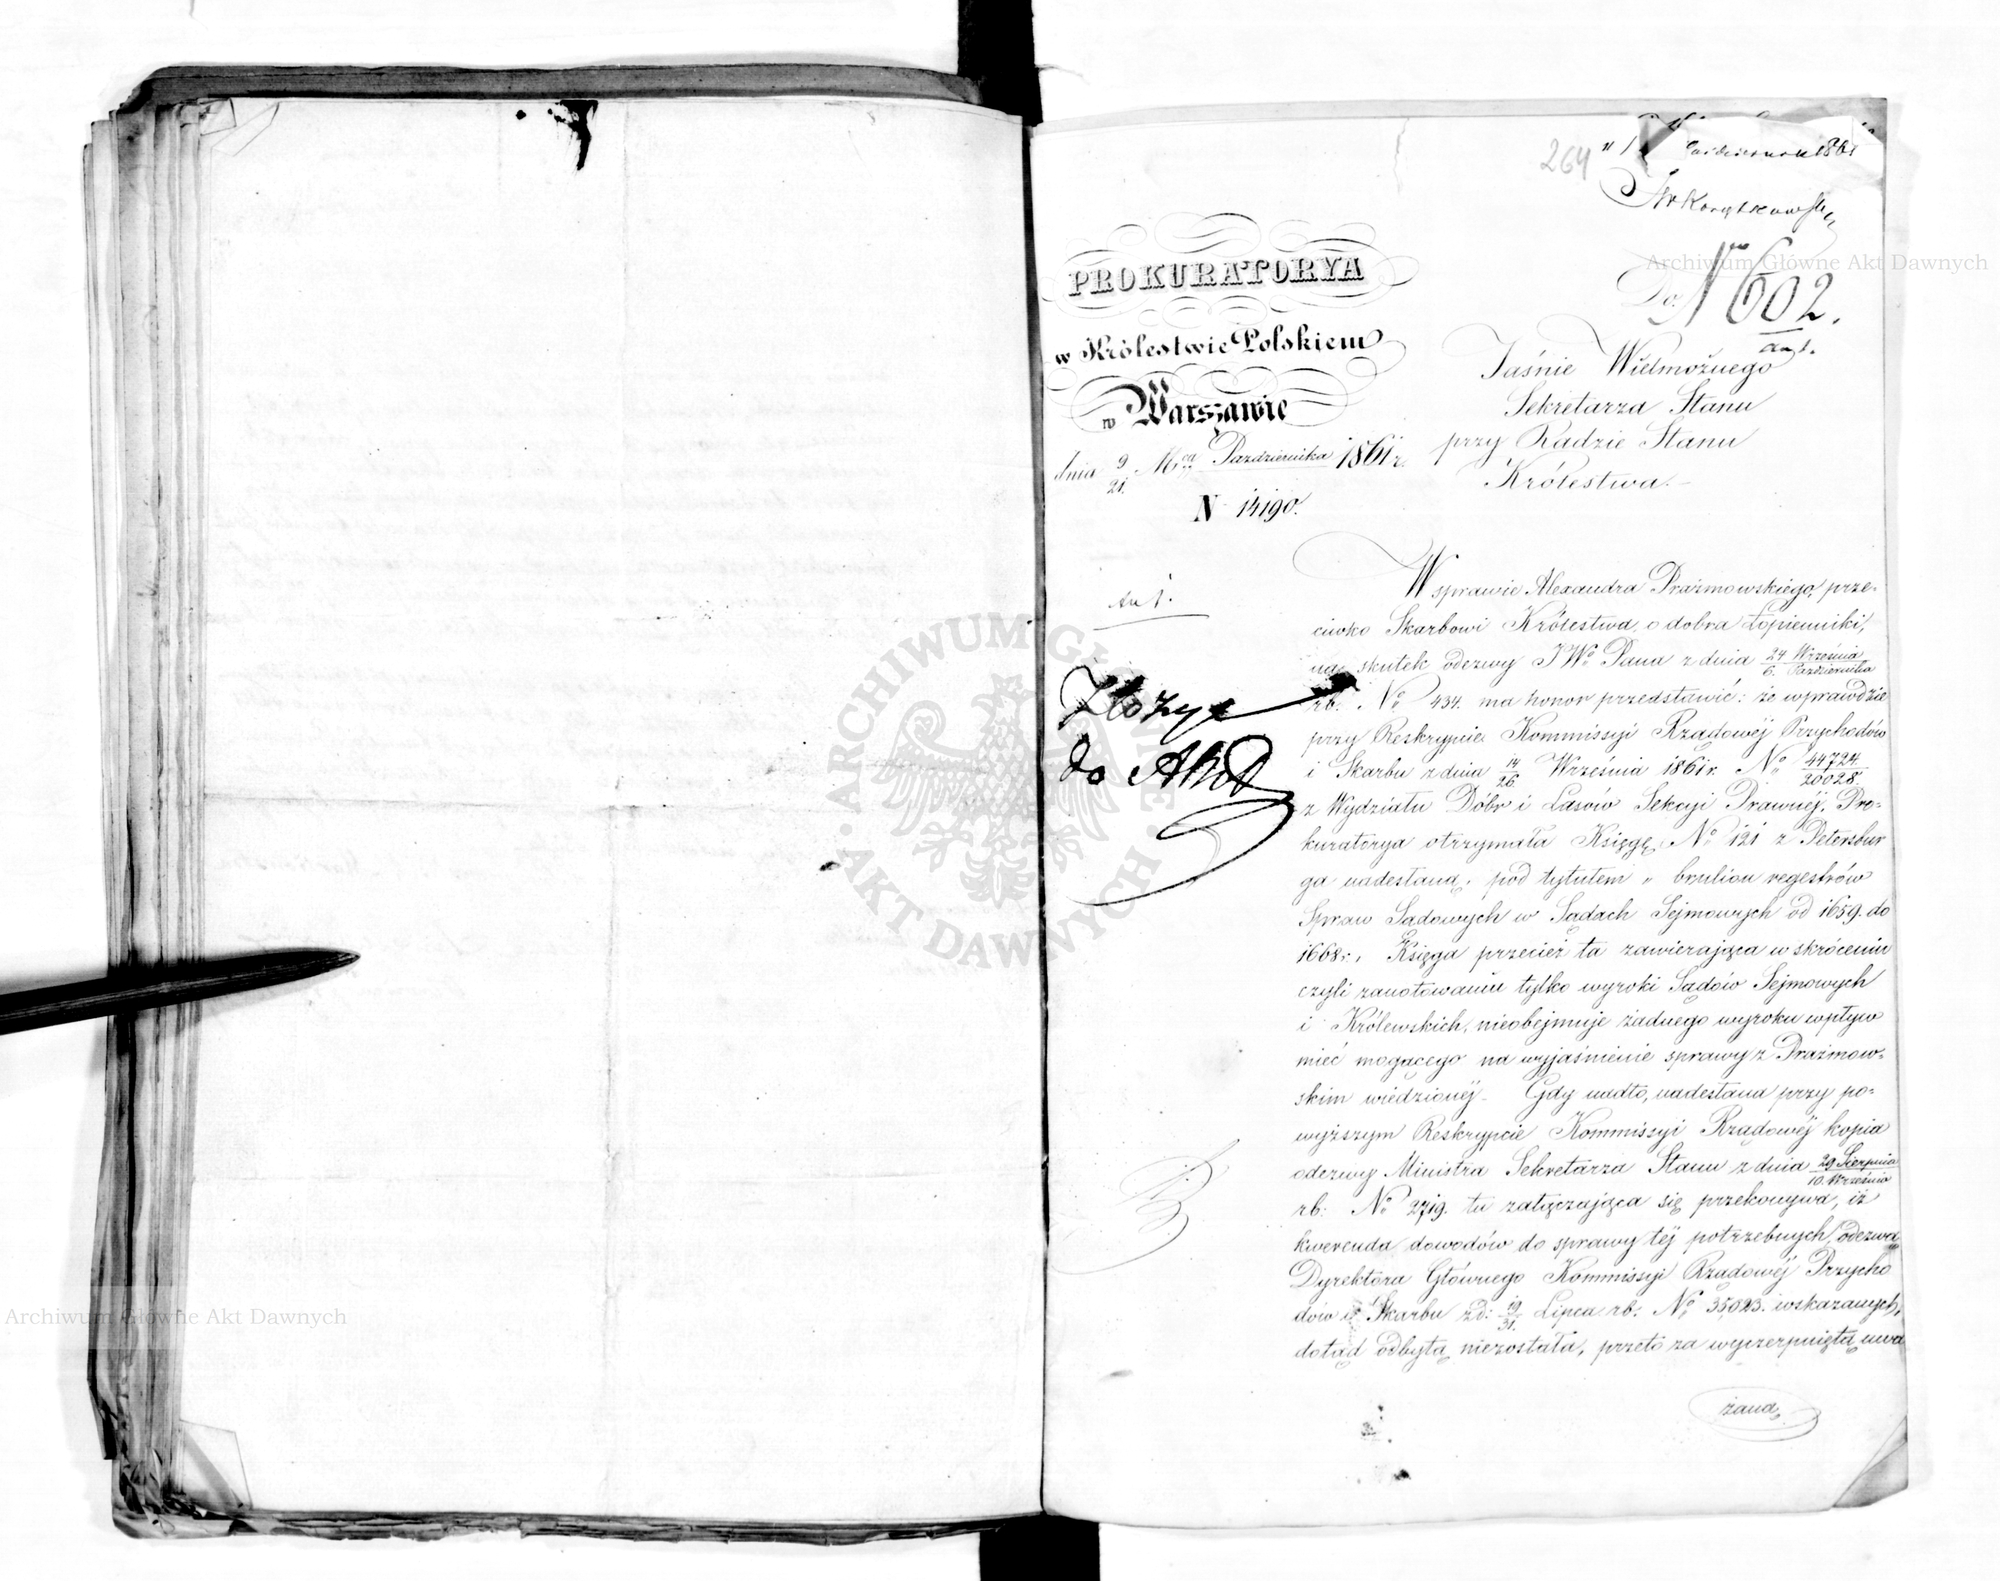 264
Października 1861
No 602.
Do
PROKURATORYA
w Królestwie Polskiem
w Warszawie
dnia 9/21 Mca Października 1861 r.
N 14190.
Jaśnie Wielmożnego
Sekretarza Stanu
przy Radzie Stanu
Królestwa.
W sprawie Alexandra Prażmowskiego, prze-
ciwko Skarbowi Królestwa, o dobra Łopienniki,
na skutek odezwy JWo Pana z dnia 24 Września/6 Października
rb. No 434. ma honor przedstawić: że wprawdzie
przy Reskrypcie Kommissyi Rządowéj Przychodów
i Skarbu z dnia 14/26 Września 1861 r. No 44724/20028.
z Wydziału Dóbr i Lasów Sekcyi Prawnéj, Pro-
kuratorya otrzymała Księgę No 121 z Petersbur
ga nadesłaną, pod tytułem „ brulion regestrów
Spraw Sądowych w Sądach Sejmowych od 1659. do
1668 r. Księga przecież ta zawierająca w skróceniu
czyli zanotowaniu tylko wyroki Sądów Sejmowych
i Królewskich, nieobejmuje żadnego wyroku wpływ
mieć mogącego na wyjaśnienie sprawy z Prażmow-
skim wiedzionéj. Gdy nadto, nadesłana przy po-
wyższym Reskrypcie Kommissyi Rządowéj kopia
odezwy Ministra Sekretarza Stanu z dnia 29 Sierpnia/10 Września
rb: No 2719. tu załączająca się przekonywa, iż
kwerenda dowodów do sprawy téj potrzebnych, odezwą
Dyrektora Głównego Kommissyi Rządowéj Przycho
dów i Skarbu z d: 19/31 Lipca rb. No 35023. wskazanych,
dotąd odbytą niezostała, przeto za wyczerpniętą uwa
żaną
Złożyć
do Akt
Archiwum Główne Akt Dawnych
Archiwum Główne Akt Dawnych
ARCHIWUM GŁÓWNE
AKT DAWNYCH